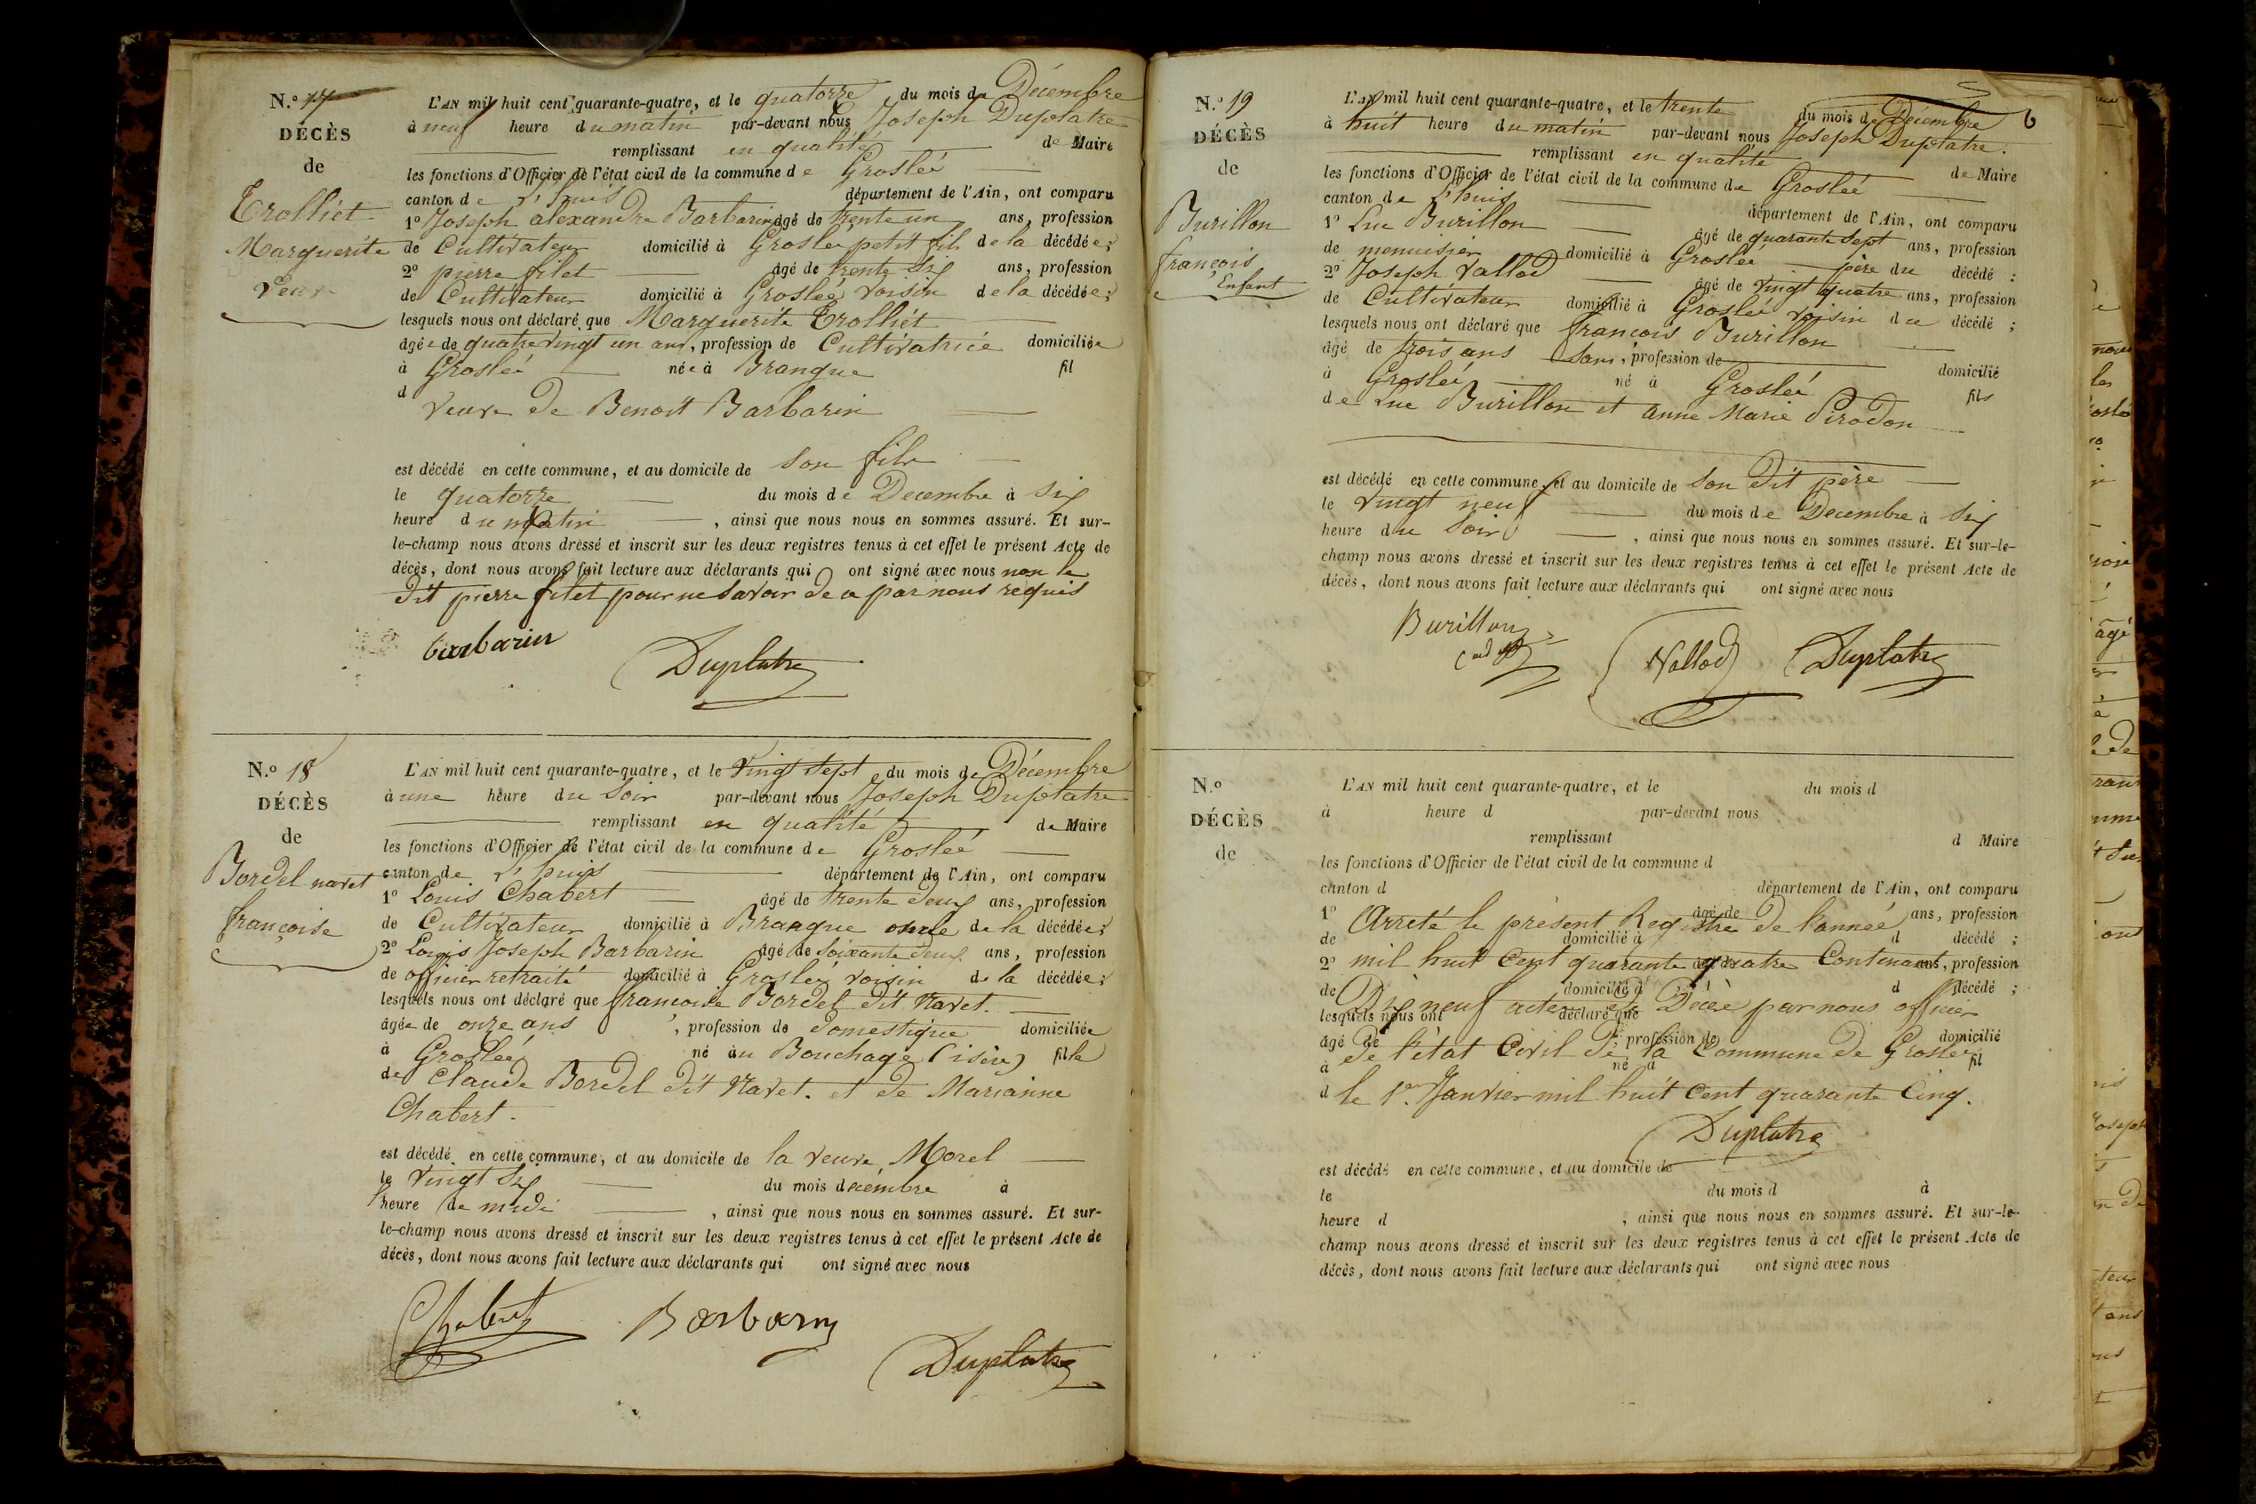 N.º 17
DÉCÈS
de
Trolliet
Marguerite
Veuve
L'AN mil huit cent quarante-quatre, et le quatorze du mois de Décembre
à neuf heure du matin par-devant nous Joseph Duplatre
remplissant en qualité de Maire
les fonctions d'Officier de l'état civil de la commune de Groslée
canton de L'huis département de l'Ain, ont comparu
1º Joseph alexandre Barbarin âgé de trente un ans, profession
de Cultivateur domicilié à Groslée petit fils de la décédée;
2º pierre filet âgé de trente six ans, profession
de Cultivateur domicilié à Groslée voisin de la décédée;
lesquels nous ont déclaré que Marguerite Trolliet
âgée de quatre vingt un ans, profession de Cultivatrice domiciliée
à Groslée née à Brangue fil
d veuve de Benoit Barbarin
est décédé en cette commune, et au domicile de son fils
le quatorze du mois de Decembre à six
heure du matin, ainsi que nous nous en sommes assuré. Et sur-
le-champ nous avons dressé et inscrit sur les deux registres tenus à cet effet le présent Acte de
décès, dont nous avons fait lecture aux déclarants qui ont signé avec nous non le
dit pierre filet pour ne savoir de ce par nous requis
barbarin Duplatre
N.º 18
DÉCÈS
de
Bordel navet
françoise
L'AN mil huit cent quarante-quatre, et le Vingt sept du mois de Décembre
à une heure du Soir par-devant nous Joseph Duplatre
remplissant en qualité de Maire
les fonctions d'Officier de l'état civil de la commune de Groslée
canton de L'huis département de l'Ain, ont comparu
1º Louis Chabert âgé de trente deux ans, profession
de Cultivateur domicilié à Brangue oncle de la décédée;
2º Louis Joseph Barbarin âgé de Soixante deux ans, profession
de officier retraité domicilié à Groslée voisin de la décédée;
lesquels nous ont déclaré que francoise Bordel dit Navet.
âgée de onze ans, profession de domestique domiciliée
à Groslée né au Bouchage (isère) fille
de Claude Bordel dit Navet. et de Marianne
Chabert.
est décédé en cette commune, et au domicile de la veuve Morel
le vingt six du mois decembre à
heure de midi, ainsi que nous nous en sommes assuré. Et sur-
le-champ nous avons dressé et inscrit sur les deux registres tenus à cet effet le présent Acte de
décès, dont nous avons fait lecture aux déclarants qui ont signé avec nous
Chabert Barbarin
Duplatre
6
N.º 19
DÉCÈS
de
Burillon
françois
Enfant
L'AN mil huit cent quarante-quatre, et le trente du mois de Décembre
à huit heure du matin par-devant nous Joseph Duplatre.
remplissant en qualité de Maire
les fonctions d'Officier de l'état civil de la commune de Groslée
canton de L'huis département de l'Ain, ont comparu
1º Luc Burillon âgé de quarante sept ans, profession
de menuisier domicilié à Groslée père du décédé;
2º Joseph Vallod âgé de vingt quatre ans, profession
de Cultivateur domicilié à Groslée voisin du décédé;
lesquels nous ont déclaré que françois Burillon
âgé de trois ans sans, profession de domicilié
à Groslée né à Groslée fils
de Luc Burillon et anne Marie Pirodon
est décédé en cette commune, et au domicile de son dit père
le vingt neuf du mois de Decembre à six
heure du Soir, ainsi que nous nous en sommes assuré. Et sur-le-
champ nous avons dressé et inscrit sur les deux registres tenus à cet effet le présent Acte de
décès, dont nous avons fait lecture aux déclarants qui ont signé avec nous
Burillon Vallod Duplatre
N.º
DÉCÈS
de
L'AN mil huit cent quarante-quatre, et le du mois d
à heure d par-devant nous
remplissant d Maire
les fonctions d'Officier de l'état civil de la commune d
canton d département de l'Ain, ont comparu
1º âgé de ans, profession
Arreté le présent Registre de l'année
de domicilié à d décédé;
2º âgé de ans, profession
mil huit cent quarante quatre Contenant
de domicilié à d décédé;
Dix neuf actes de Décès par nous officier
lesquels nous ont déclaré que
âgé de, profession de domicilié
de l'état Civil de la Commune de Groslée
à né à fil
d le 1er. Janvier mil huit cent quarante Cinq.
Duplatre
est décédé en cette commune, et au domicile de
le du mois d à
heure d, ainsi que nous nous en sommes assuré. Et sur-le-
champ nous avons dressé et inscrit sur les deux registres tenus à cet effet le présent Acte de
décès, dont nous avons fait lecture aux déclarants qui ont signé avec nous